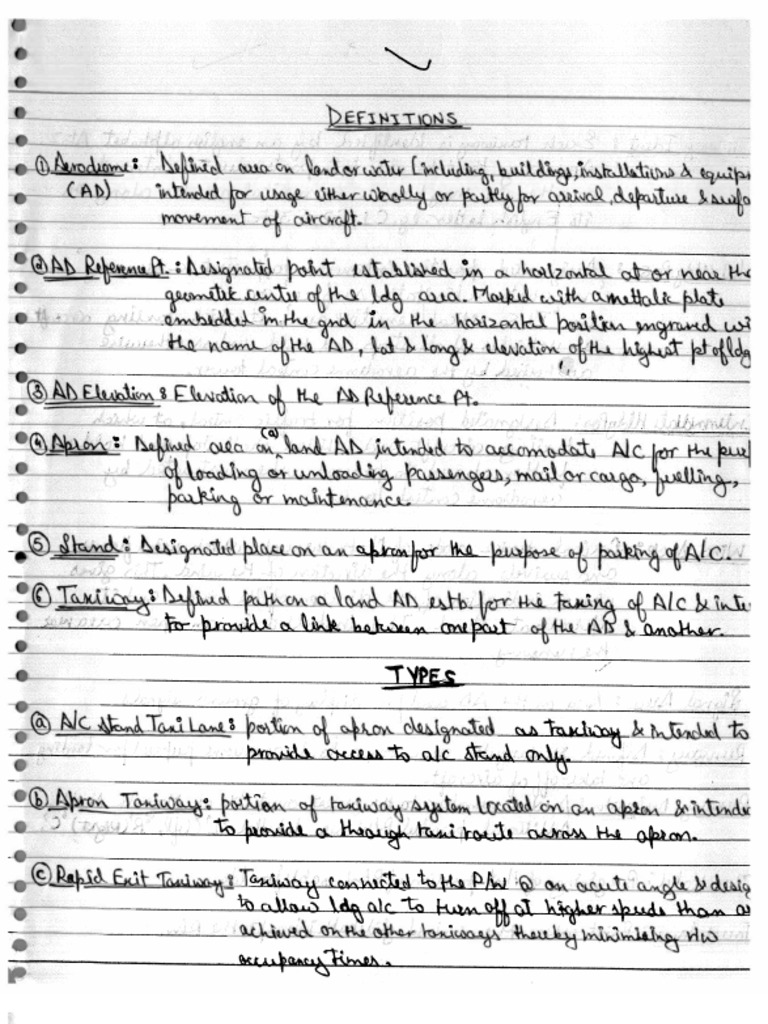 DEFINITIONS
① Aerodrome: Defined area on land or water [including, buildings, installations & equip
(AD) intended for usage either woolly or partly for arrival, departure & surfa
movement of aircraft.
② AD Reference Pt.: Designated point established in a horizontal at or near the
geometric centre of the ldg area. Marked with a mettalic plate
embedded in the gnd in the horizontal position engraved wi
the name of the AD, lat & long & elevation of the highest pt of ldg
③ AD Elevation: Elevation of the AD Reference Pt.
④ Apron: Defined area on (a) land AD intended to accomodate A/C for the purp
of loading or unloading passengers, mail or cargo, fuelling,
parking or maintenance.
⑤ Stand: Designated place on an apron for the purpose of parking of A/C.
⑥ Taxiway: Defined path on a land AD estb. for the taxing of A/C & inte
to provide a link between one part of the AD & another.
TYPES
ⓐ A/C Stand Taxi Lane: portion of apron designated as taxiway & intended to
provide access to a/c stand only.
ⓑ Apron Taxiway: portion of taxiway system located on an apron & intende
to provide a through taxi route across the apron.
ⓒ Rapid Exit Taxiway: Taxiway connected to the R/w @ an acute angle & desig
to allow ldg a/c to turn off at higher speeds than a
achieved on the other taxiways thereby minimising r/w
occupancy times.